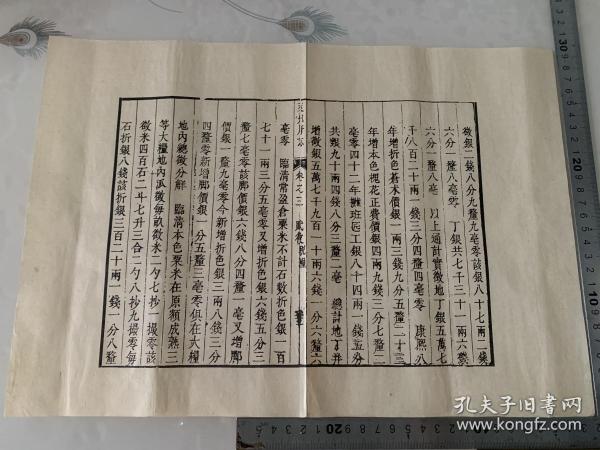 徵銀二錢八分九釐九毫零該銀八十七兩二錢
六分二釐八毫零　丁銀共七千三十一兩六錢
六分二釐八毫　以上通計實徵地丁銀五萬七
千八百二十一兩一錢三分四釐四毫零　康熙八
年增折色蒼朮價銀一兩二錢九分五釐二十三
年增本色槐花正費價銀四兩九錢三分七釐二
毫零四十二年攤班匠工銀八十四兩一錢五分
共銀九十兩四錢八分三釐二毫　總計地丁并
增徵銀五萬七千九百一十一兩六錢一分六釐六
卷之三　賦役
毫零　臨清常盈倉粟米不計石數折色銀一百
七十一兩三分五毫零又增折色銀六錢五分三
釐七毫零該腳價銀六錢八分四釐一毫又增腳
價銀一釐九毫零今新增折色銀三兩八錢三分
四釐零新增腳價銀一分五釐三毫零俱在大糧
地內總徵分解　臨清本色粟米在原額成熟三
等大糧地內派徵每畝徵米二勺七抄一撮零該
徵米四百石二斗七升三合二勺八抄九撮零每
石折銀八錢該折銀三百二十兩一錢一分八釐
孔夫子旧书网
www.kongfz.com